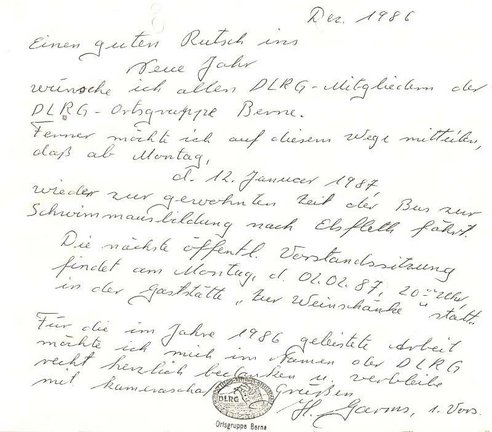 Dez. 1986
Einen guten Rutsch ins
Neue Jahr
wünsche ich allen DLRG-Mitgliedern der
DLRG-Ortsgruppe Berne.
Ferner möchte ich auf diesem Wege mitteilen,
daß ab Montag,
d. 12. Januar 1987
wieder zur gewohnten Zeit der Bus zur
Schwimmausbildung nach Elsfleth fährt.
Die nächste öffentl. Vorstandssitzung
findet am Montag, d. 02.02.87, 20⁰⁰ Uhr,
in der Gaststätte „Zur Weinschänke" statt.
Für die im Jahre 1986 geleistete Arbeit
möchte ich mich im Namen der DLRG
recht herzlich bedanken u. verbleibe
mit kameradschaf Grüßen
H. Garms, 1. Vors.
DLRG
Ortsgruppe Berne